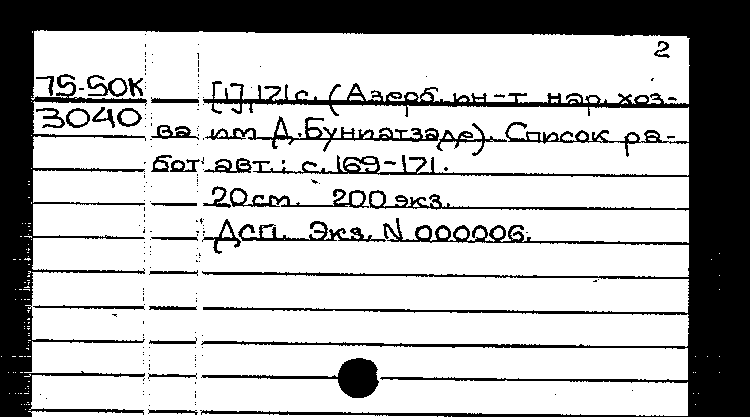 2
75-50к [1], 171 с. (Азерб. ин-т нар. хоз-
3040 ва им Д. Буниатзаде). Список ра-
бот авт.: с. 169-171.
20 см. 200 экз.
ДСП. Экз. N 000006.